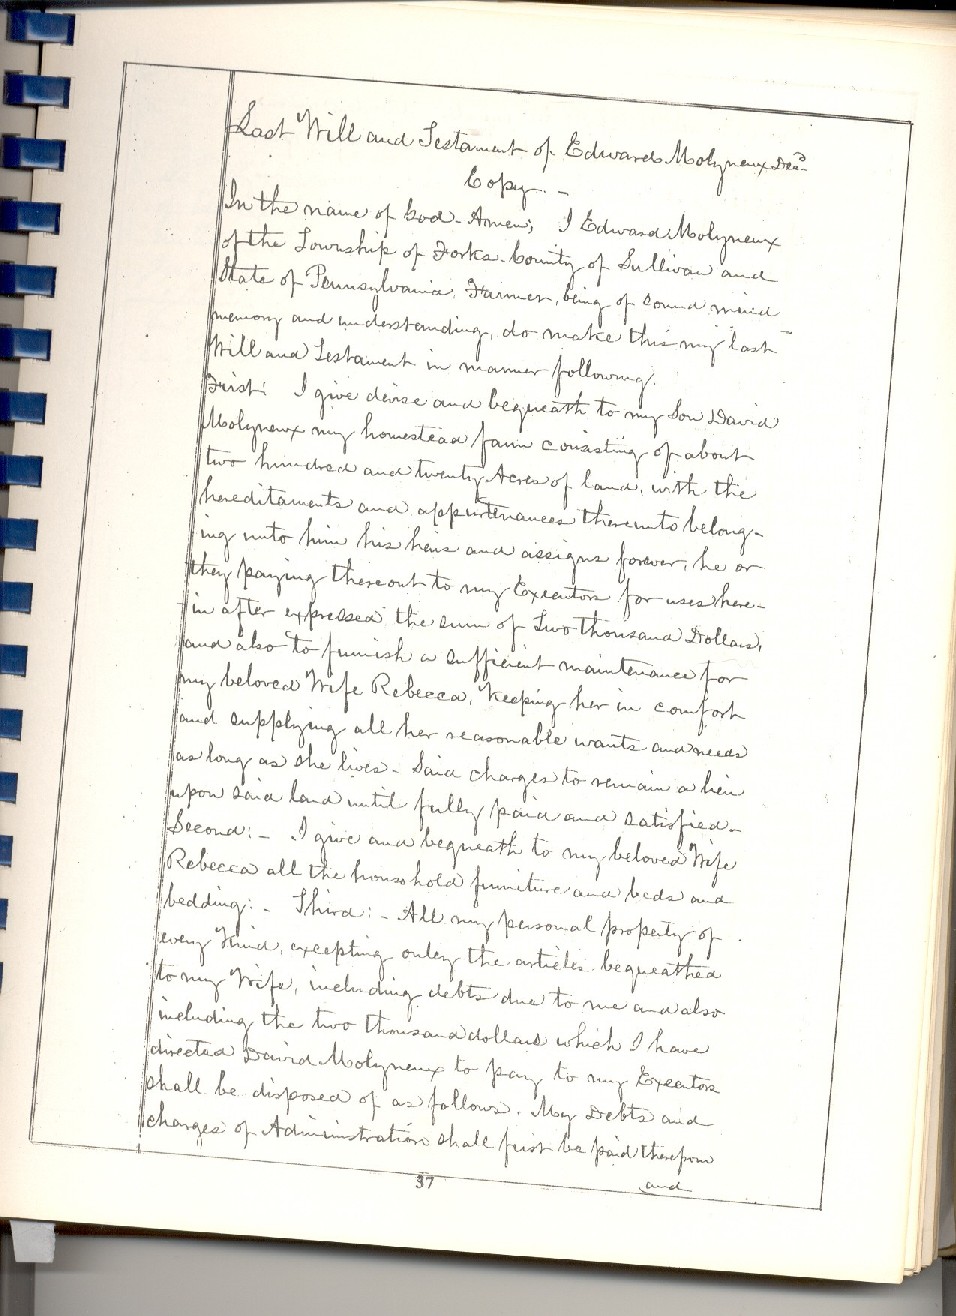 Last Will and Testament of Edward Molyneux Decd
Copy. -
In the name of God - Amen; I Edward Molyneux
of the Township of Forks. County of Sullivan and
State of Pennsylvania, Farmer, being of sound mind
memory and understanding, do make this my last
Will and Testament in manner following.
First: I give devise and bequeath to my Son David
Molyneux my homestead farm consisting of about
two hundred and twenty Acres of land, with the
hereditaments and appurtenances thereunto belong-
ing unto him his heirs and assigns forever, he or
they paying thereout to my Executors for uses here-
in after expressed the sum of Two thousand Dollars,
and also to furnish a sufficient maintenance for
my beloved Wife Rebecca, Keeping her in comfort
and supplying all her reasonable wants and needs
as long as she lives - Said charges to remain a lien
upon said land until fully paid and satisfied -
Second: - I give and bequeath to my beloved Wife
Rebecca all the household furniture and beds and
bedding: - Third: - All my personal property of
every Kind, excepting only the articles bequeathed
to my Wife, including debts due to me and also
including the two thousand dollars which I have
directed David Molyneux to pay to my Executors
shall be disposed of as follows. My Debts and
charges of Administration shall first be paid therefrom
and
37